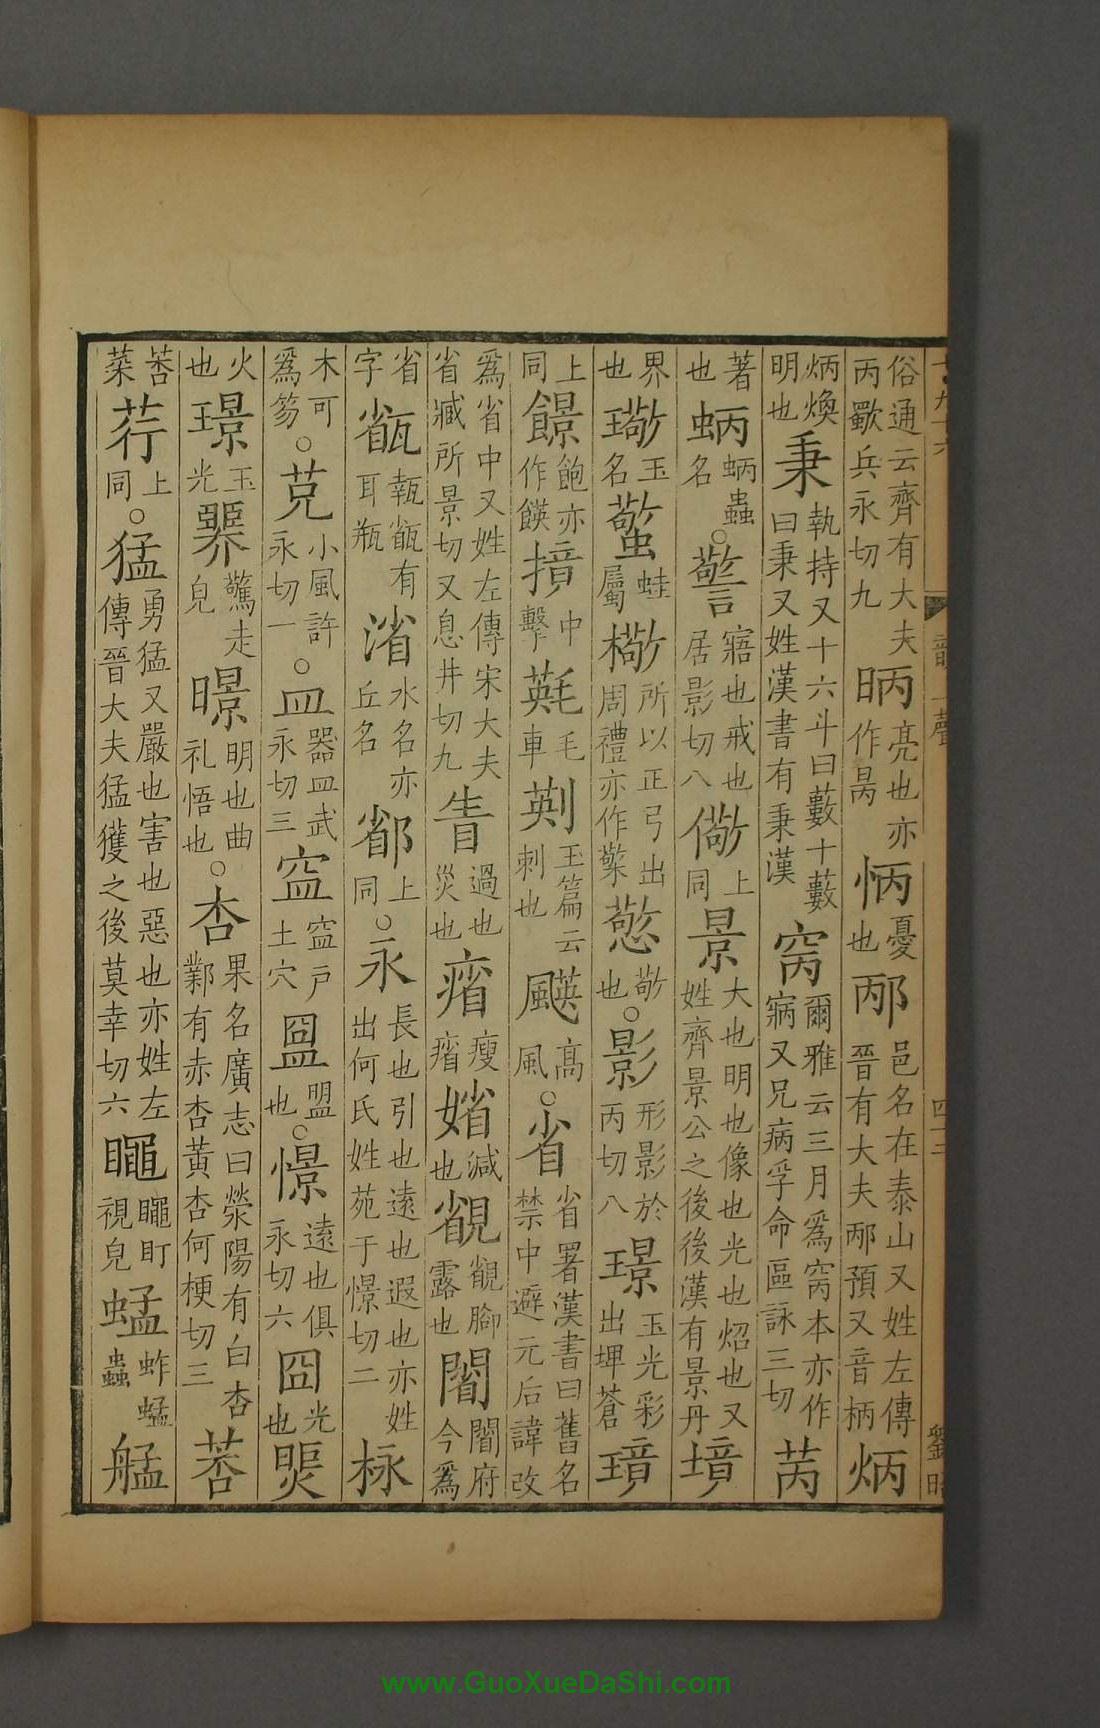 俗通云齊有大夫丙歜兵永切九昞亮也亦作昺怲憂也邴邑名在泰山又姓左傳晉有大夫邴預又音柄炳
炳煥明也秉執持又十六斗曰藪十藪曰秉又姓漢書有秉漢窉爾雅云三月為窉本亦作寎又兄病孚命區詠三切苪
著也蛃蛃蟲名○警寤也戒也居影切八儆上同景大也明也像也光也炤也又姓齊景公之後後漢有景丹璄
界也璥玉名蟼蛙屬㯳所以正弓出周禮亦作檠憼敬也○影形影於丙切八璟玉光彩出埤蒼璄
上同䭘飽亦作䭊撎中擊毛車玉篇云刺也高風○省省署漢書曰舊名禁中避元后諱改
為省中又姓左傳宋大夫省臧所景切又息井切九眚過也災也瘖瘦㾪媘減也䚇䚇䁖露也䦔䦔府今為
省字㼳瓡㼳有耳瓶渻水名亦丘名䣂上同○永長也引也遠也遐也亦姓出何氏姓苑于憬切二栐
木可為笏○克小風許永切一○皿器皿武永切三䆨䆨戶土穴盟盟也○憬遠也俱永切六囧光也煚
火也璟玉光臩驚走皃暻明也曲礼悟也○杏果名廣志曰滎陽有白杏鄴有赤杏黃杏何梗切三莕
莕菜荇上同○猛勇猛又嚴也害也惡也亦姓左傳晉大夫猛獲之後莫幸切六䁅䁅盯視皃蜢蚱蜢蟲艋
www.GuoXueDaShi.com